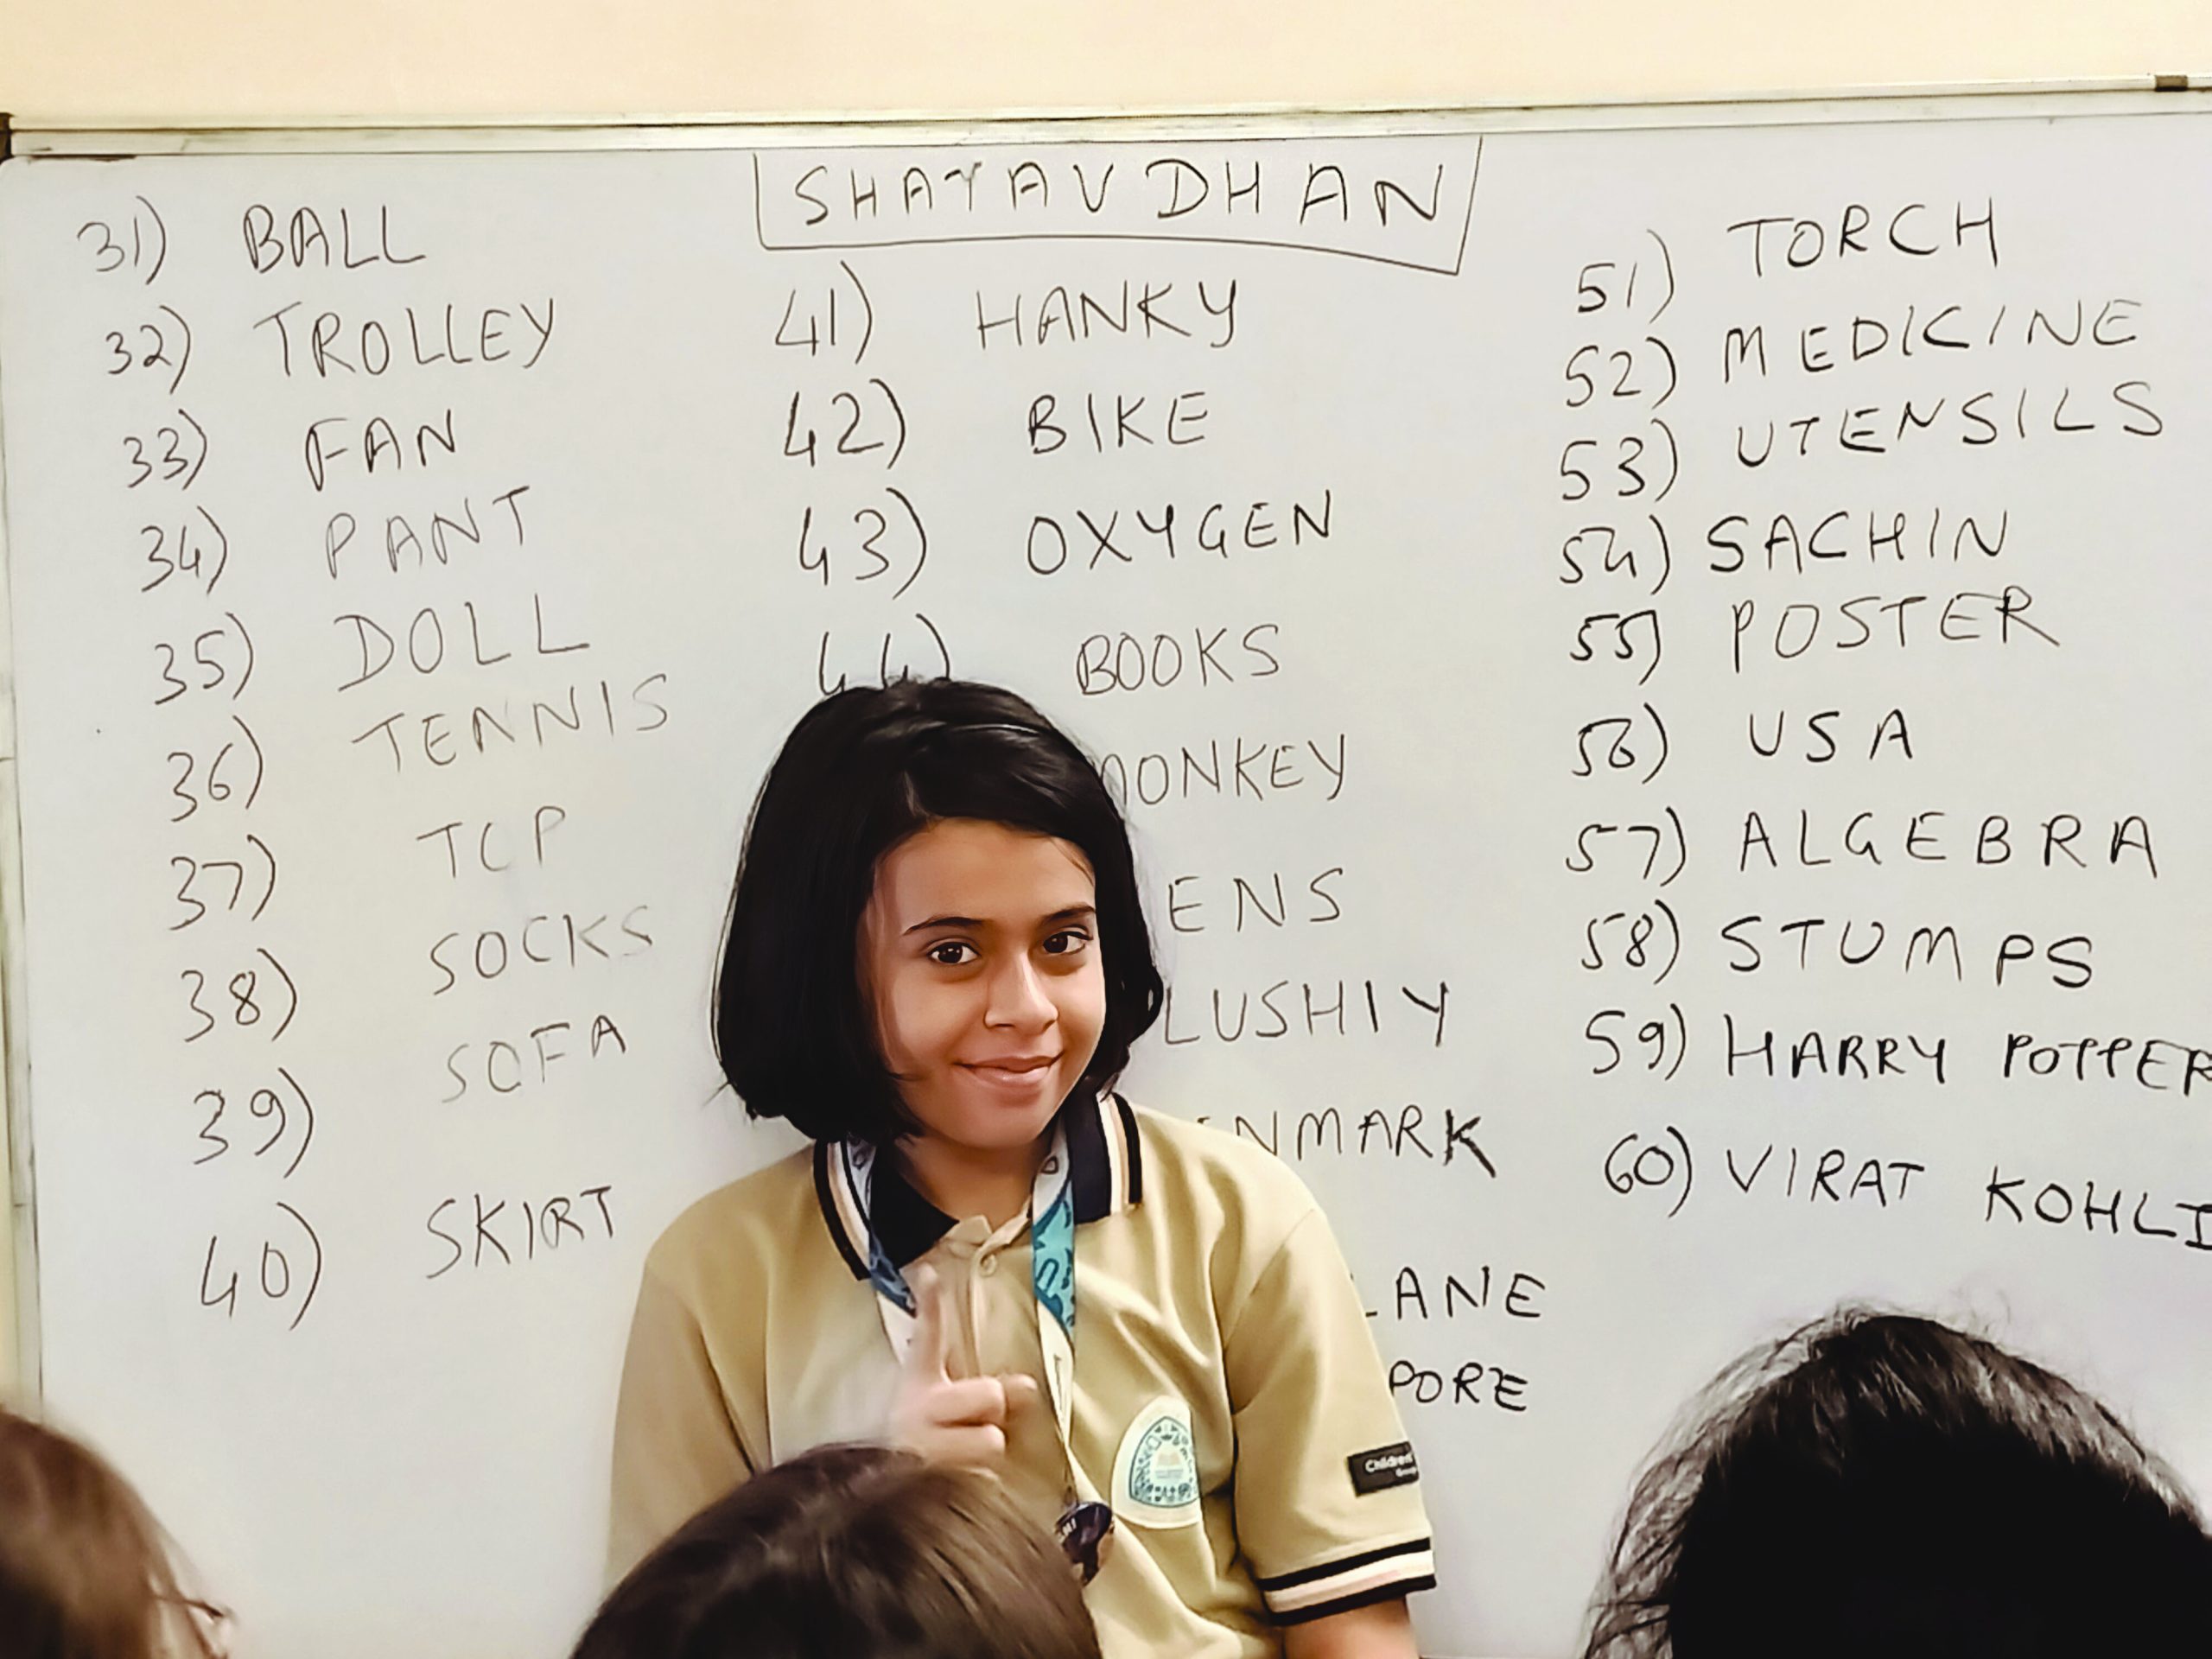 SHATAVDHAN
31) BALL
32) TROLLEY
33) FAN
34) PANT
35) DOLL
36) TENNIS
37) TCP
38) SOCKS
39) SOFA
40) SKIRT
41) HANKY
42) BIKE
43) OXYGEN
44) BOOKS
MONKEY
ENS
LUSHIY
NMARK
LANE
PORE
51) TORCH
52) MEDICINE
53) UTENSILS
54) SACHIN
55) POSTER
56) USA
57) ALGEBRA
58) STUMPS
59) HARRY POTTER
60) VIRAT KOHLI
Children